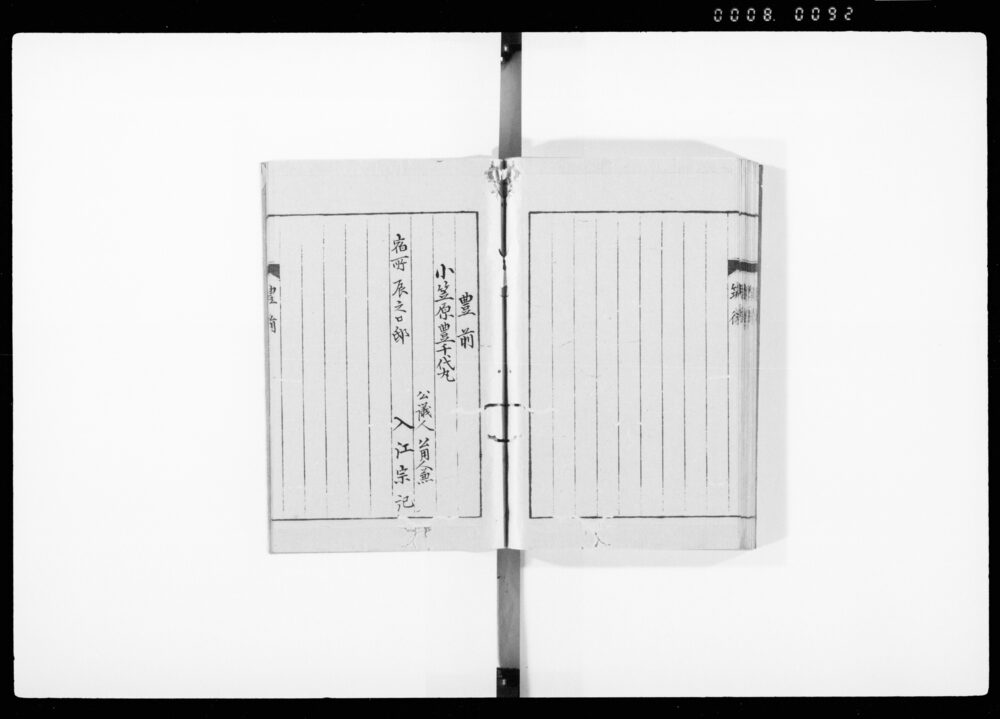 0008. 0092
豊前
小笠原豊千代丸
公議人
入江宗記
宿所 辰之口邸
豊前